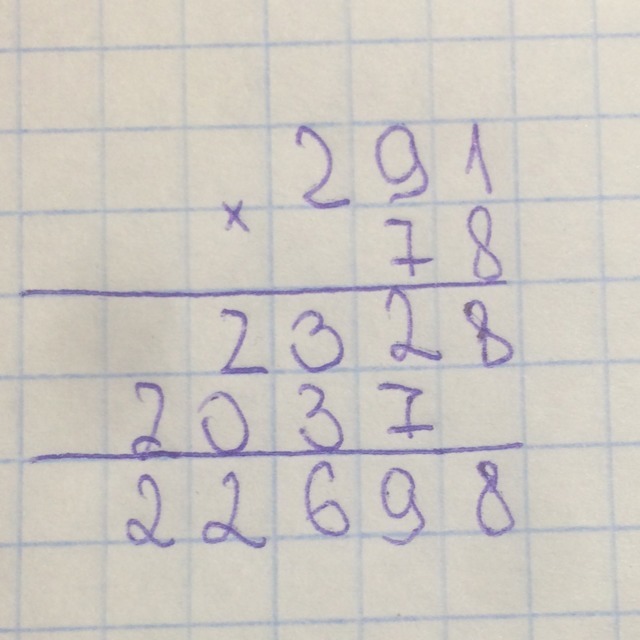 291
×
78
2328
2037
22698